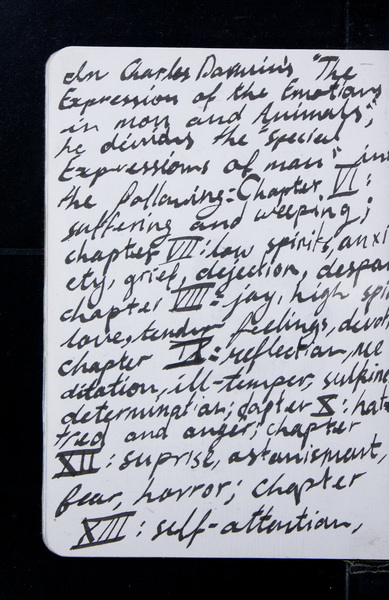 In Charles Darwin's "The
Expression of the Emotions
in man and Animals",
he divides the "special
Expressions of man" in
the following: Chapter VI:
suffering and weeping;
chapter VII: low spirits, anxi
ety, grief, dejection, despa
chapter VIII: joy, high spi
love, tender feelings, devo
chapter IX: reflection, me
ditation, ill-temper, sulkine
determination; capter X: hat
tred and anger; chapter
XII: suprise, astonisment,
fear, horror; chapter
XIII: self-attention,